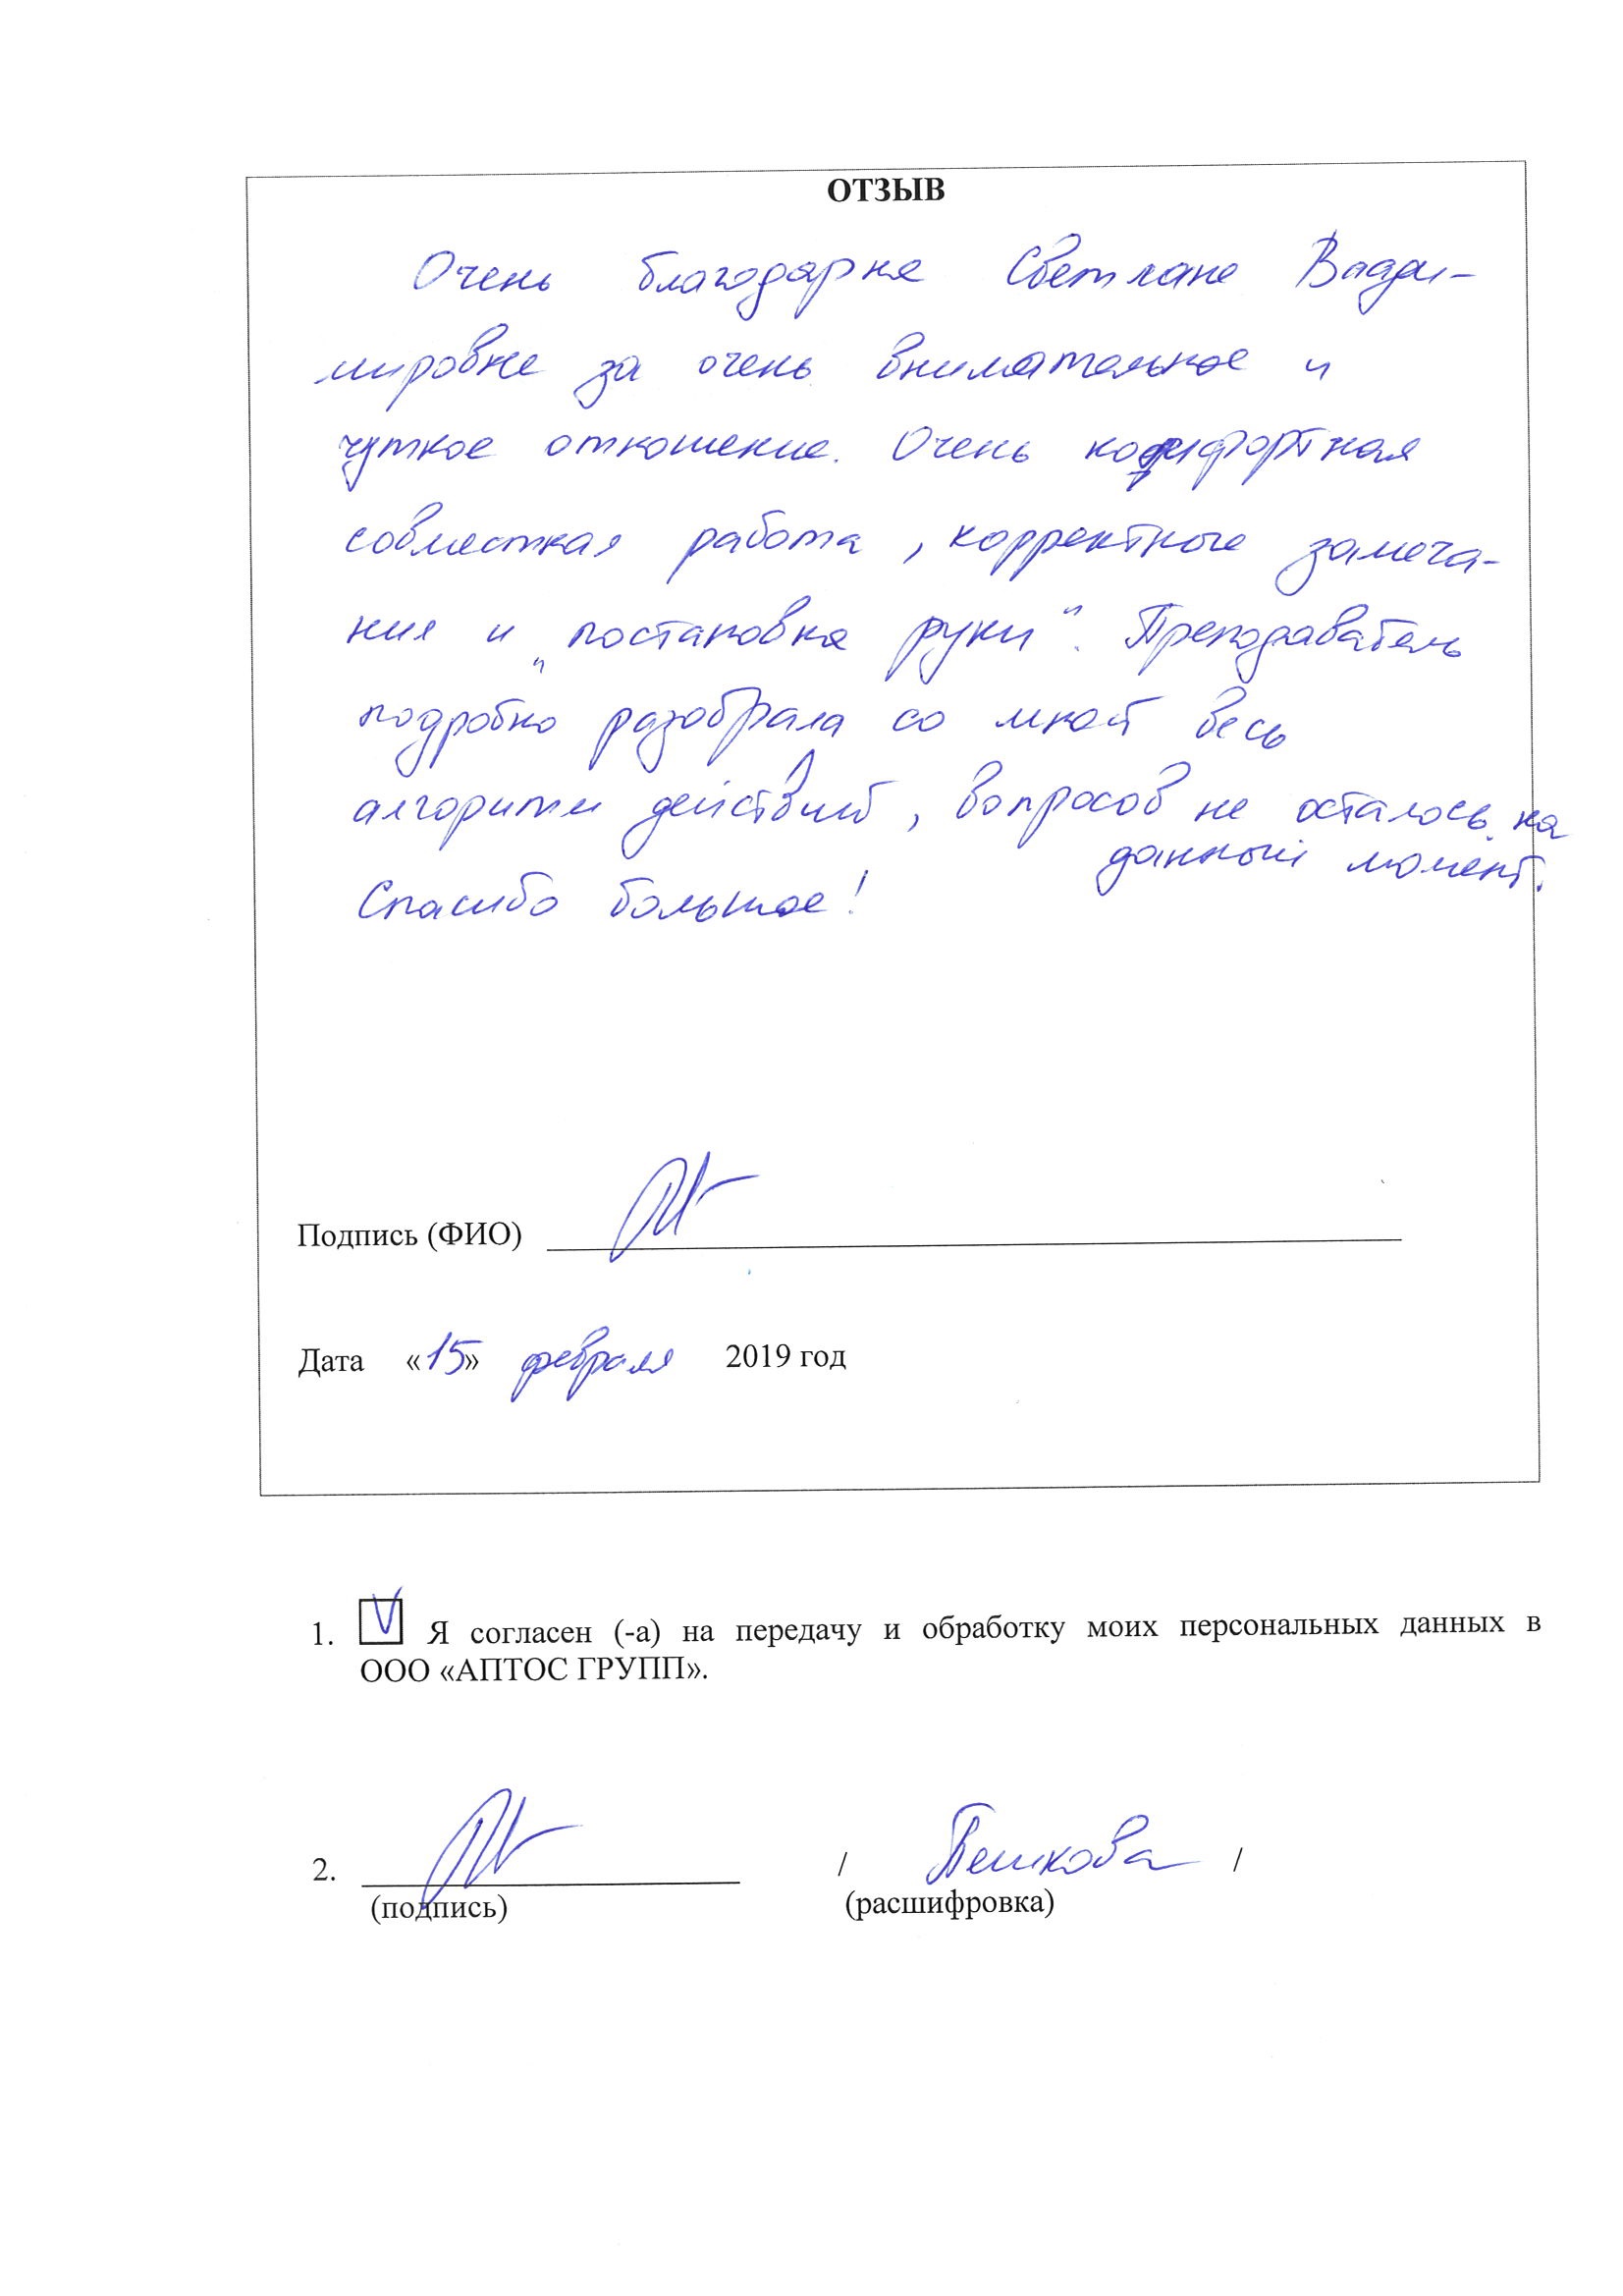 ОТЗЫВ
Очень благодарна Светлане Влади-
мировне за очень внимательное и
чуткое отношение. Очень комфортная
совместная работа, корректные замеча-
ния и „постановка руки“. Преподаватель
подробно разобрала со мной весь
алгоритм действий, вопросов не осталось на
данный момент.
Спасибо большое!
Подпись (ФИО)
Дата «15» февраля 2019 год
1. V Я согласен (-а) на передачу и обработку моих персональных данных в
ООО «АПТОС ГРУПП».
2. / Пешкова /
(подпись) (расшифровка)